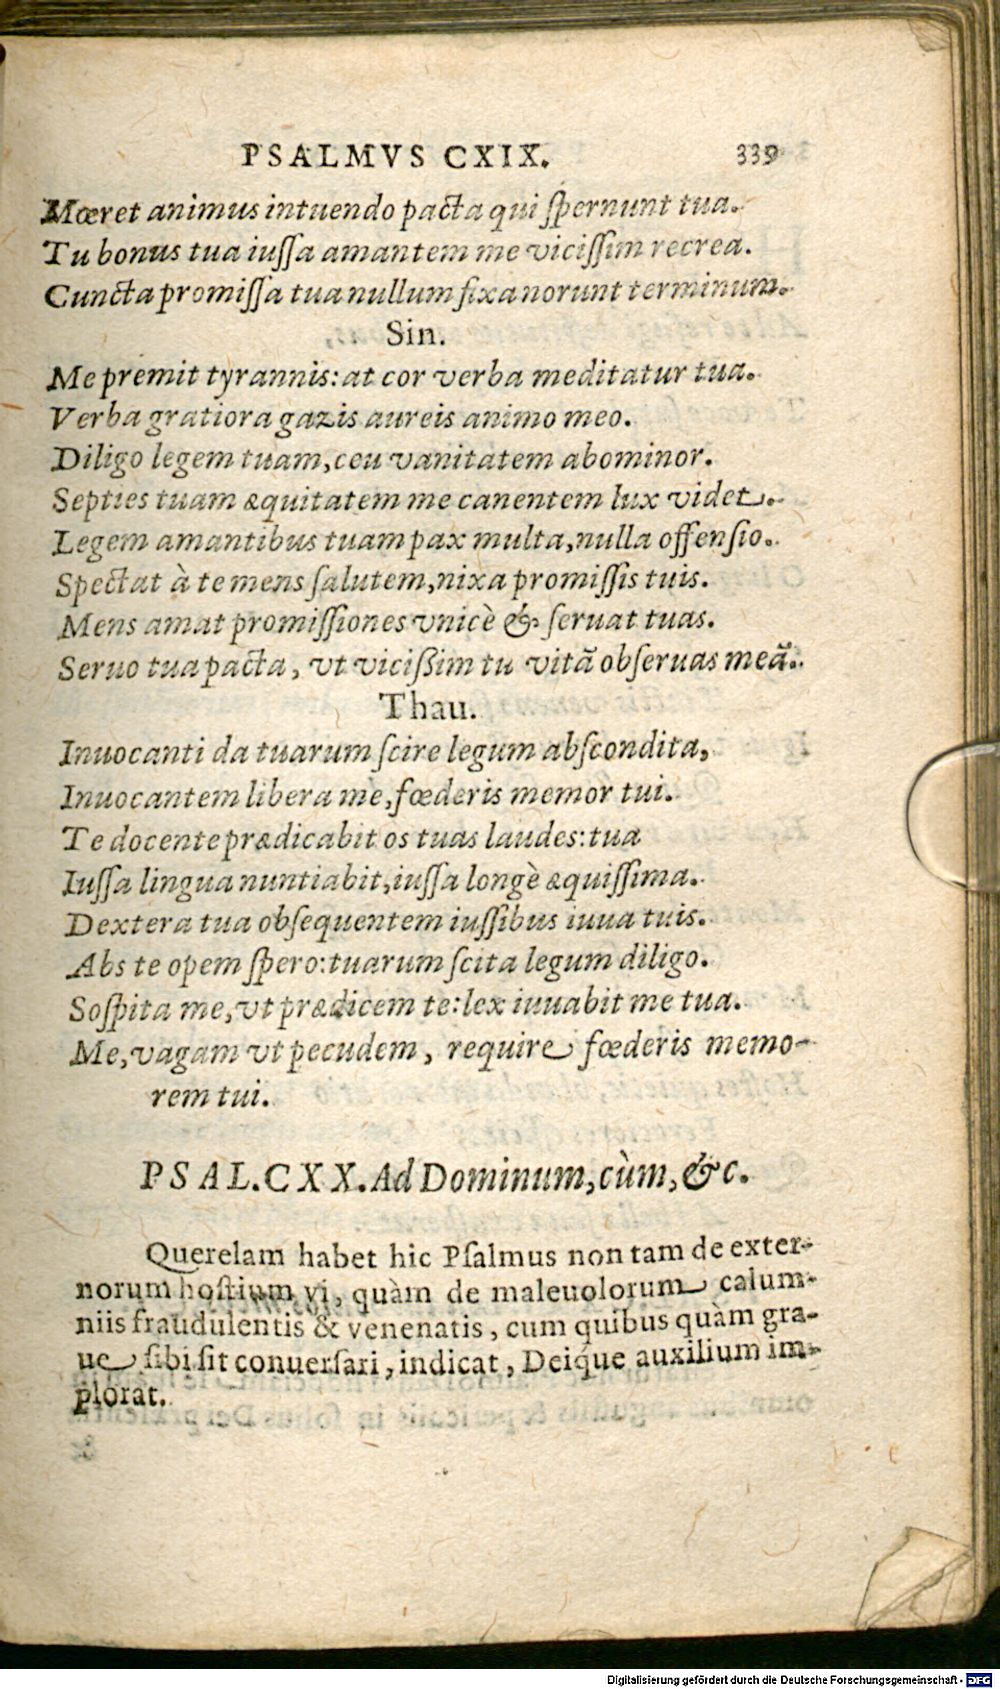 PSALMVS CXIX. 339
Mœret animus intuendo pacta qui ſpernunt tua.
Tu bonus tua iuſſa amantem me viciſſim recrea.
Cuncta promiſſa tua nullum fixa norunt terminum.
Sin.
Me premit tyrannis: at cor verba meditatur tua.
Verba gratiora gazis aureis animo meo.
Diligo legem tuam, ceu vanitatem abominor.
Septies tuam æquitatem me canentem lux videt.
Legem amantibus tuam pax multa, nulla offenſio.
Spectat à te mens ſalutem, nixa promiſſis tuis.
Mens amat promiſſiones vnicè & ſeruat tuas.
Seruo tua pacta, vt vicißim tu vitã obſeruas meã.
Thau.
Inuocanti da tuarum ſcire legum abſcondita,
Inuocantem libera me, fœderis memor tui.
Te docente prædicabit os tuas laudes: tua
Iuſſa lingua nuntiabit, iuſſa longè æquiſſima.
Dextera tua obſequentem iuſſibus iuua tuis.
Abs te opem ſpero: tuarum ſcita legum diligo.
Soſpita me, vt prædicem te: lex iuuabit me tua.
Me, vagam vt pecudem, require fœderis memo-
rem tui.
PSAL. CXX. Ad Dominum, cùm, &c.
Querelam habet hic Pſalmus non tam de exter-
norum hoſtium vi, quàm de maleuolorum calum-
niis fraudulentis & venenatis, cum quibus quàm gra-
ue ſibi ſit conuerſari, indicat, Deíque auxilium im-
plorat.
Digitalisierung gefördert durch die Deutsche Forschungsgemeinschaft - DFG